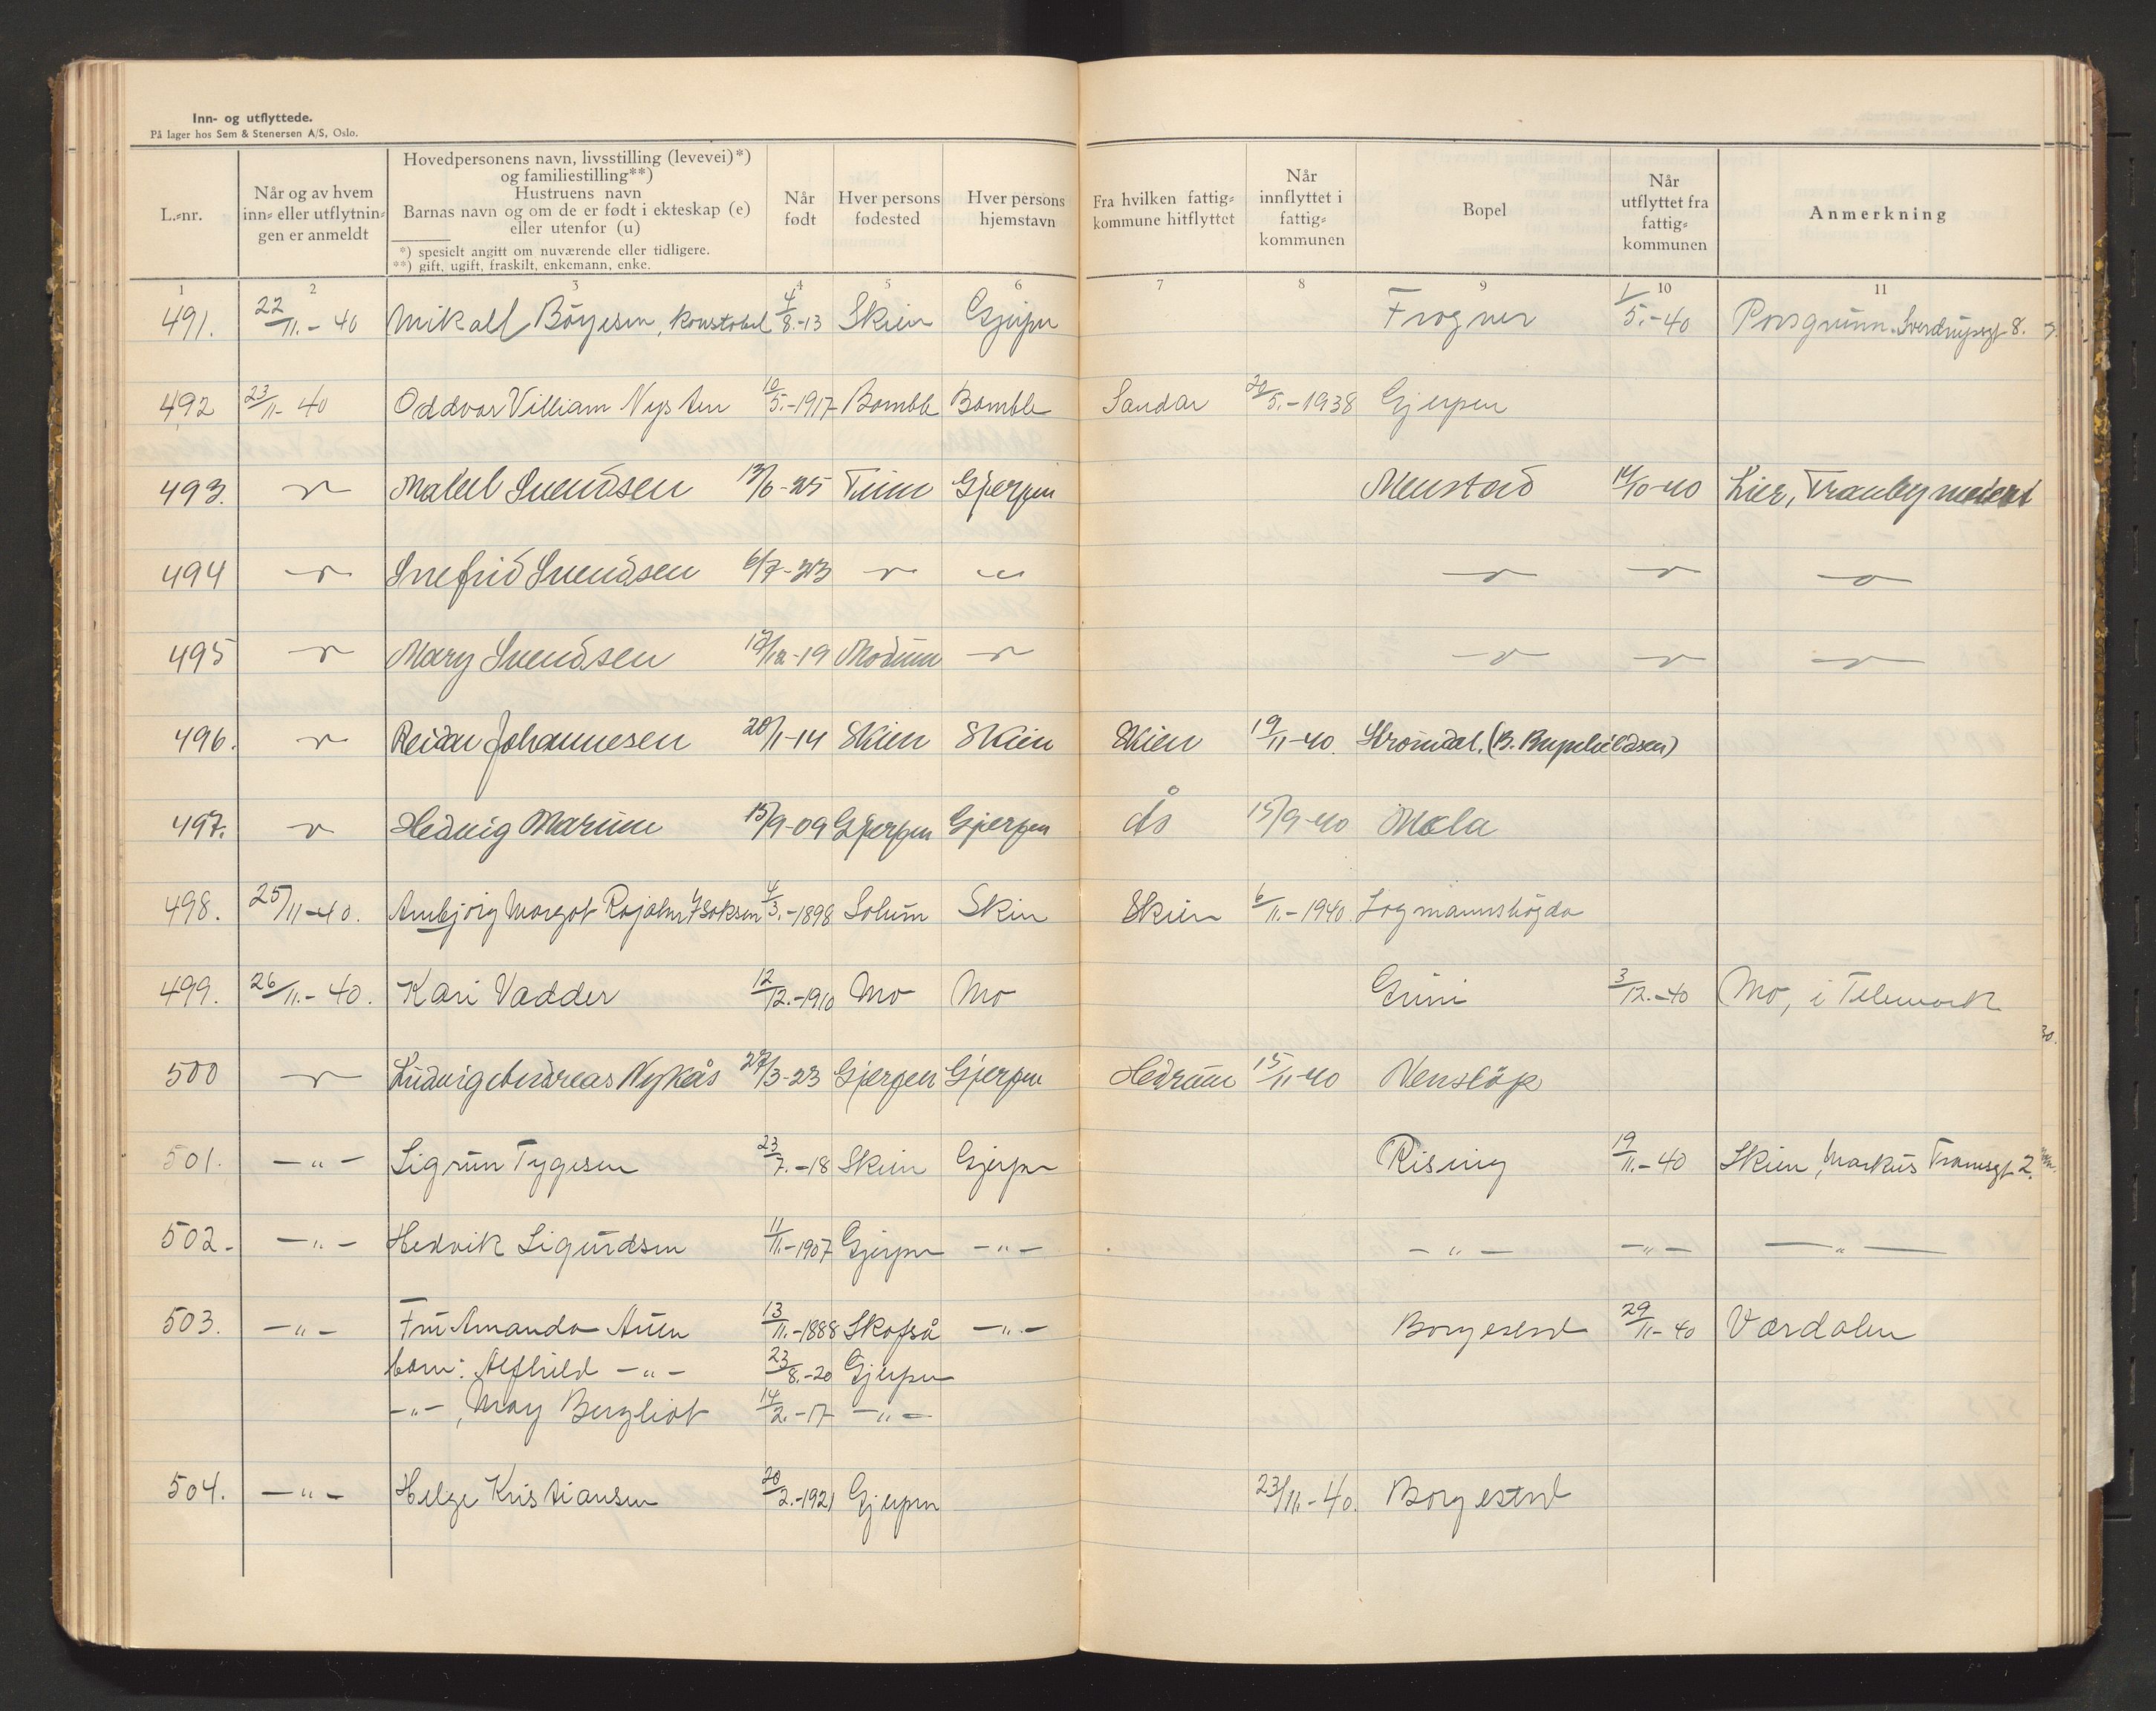 Inn- og utflyttede.
På lager hos Sem & Stenersen A/S, Oslo.
L.-nr.
Når og av hvem inn- eller utflytningen er anmeldt
Hovedpersonens navn, livsstilling (levevei)*) og familiestilling**)
Hustruens navn
Barnas navn og om de er født i ekteskap (e) eller utenfor (u)
*) spesielt angitt om nuværende eller tidligere.
**) gift, ugift, fraskilt, enkemann, enke.
Når født
Hver persons fødested
Hver persons hjemstavn
Fra hvilken fattigkommune hitflyttet
Når innflyttet i fattigkommunen
Bopel
Når utflyttet fra fattigkommunen
Anmerkning
1 2 3 4 5 6 7 8 9 10 11
491. 22/11.-40 Mikall Böyesen, konstabel 4/8.-13 Skien Gjerpen Frogner 1/5.-40 Porsgrunn. Sverdrupsgt 8.
492 23/11-40 Oddvar Villiam Nysten 10/5.-1917 Bamble Bamble Sandar 20/5.-1938 Gjerpen
493. Svendsen 13/6-25 Gjerpen Menstad 14/10-40 Lier, Tranby
494 Snefrid Svendsen 6/7-23
495 Mary Svendsen /12-19 Modum
496. Reidar Johannesen 20/1-14 Skien Skien Skien 19/11-40.
497. Hedvig 15/9-09 Gjerpen Gjerpen Ås 15/9-40 Mæla
498. 25/11-40. Margot 4/3.-1898 Solum Skien Skien 6/11.-1940. Lagmannshögda
499. 26/11.-40. Kari Vadder 12/12.-1910 Mo Mo Grini 3/12.-40 Mo, i Telemark
500 Ludvig Andreas Nykås 27/3-23 Gjerpen Gjerpen Hedrum 15/11-40 Venslöp
501. -"- Sigrun Tygesen 23/7.-18 Skien Gjerpen Rising 19/11.-40 Skien, Markus Thranesgt 2.
502. -"- Hedvik Sigurdsen 11/11.-1907 Gjerpen -"- -"- -"- -"-
503. -"- Fru Amanda Auen 13/11.-1888 Skafså -"- Borgestad 29/11-40 Værdalen
barn: Alfhild -"- 23/8.-20 Gjerpen
-"-, May Bergliot 14/2.-17 -"-
504. -"- Helge Kristiansen 20/2.-1921 Gjerpen 23/11.-40. Borgestad